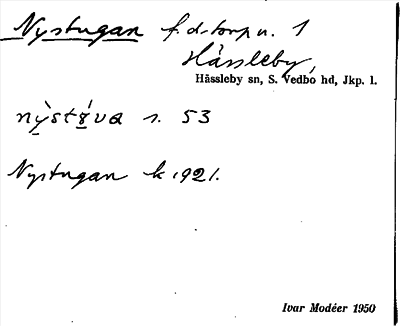 Nystugan f.d. torp u. 1
Hässleby,
Hässleby sn, S. Vedbo hd, Jkp. l.
nỳstúva s. 53
Nystugan k 1921.
Ivar Modéer 1950